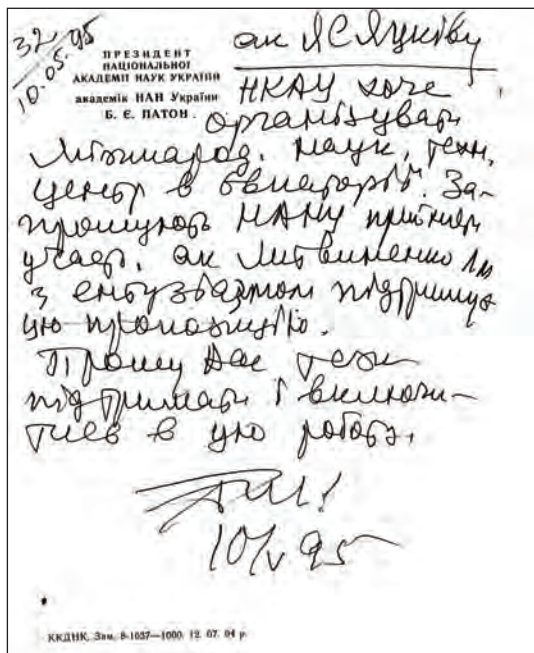 32/95
10.05.
ПРЕЗИДЕНТ
НАЦІОНАЛЬНОЇ
АКАДЕМІЇ НАУК УКРАЇНИ
академік НАН України
Б. Є. ПАТОН
ак Я С Яцківу
НКАУ хоче
організувати
Міжнарод. наук. техн.
центр в Євпаторії. За-
прошують НАНУ прийняти
участь. ак Литвиненко ЛМ
з ентузіазмом підтримує
цю пропозицію.
Прошу Вас теж
підтримати і включи-
тись в цю роботу.
10/V 95
ККДНК. Зам. 8-1037—1000. 12. 07. 94 р.